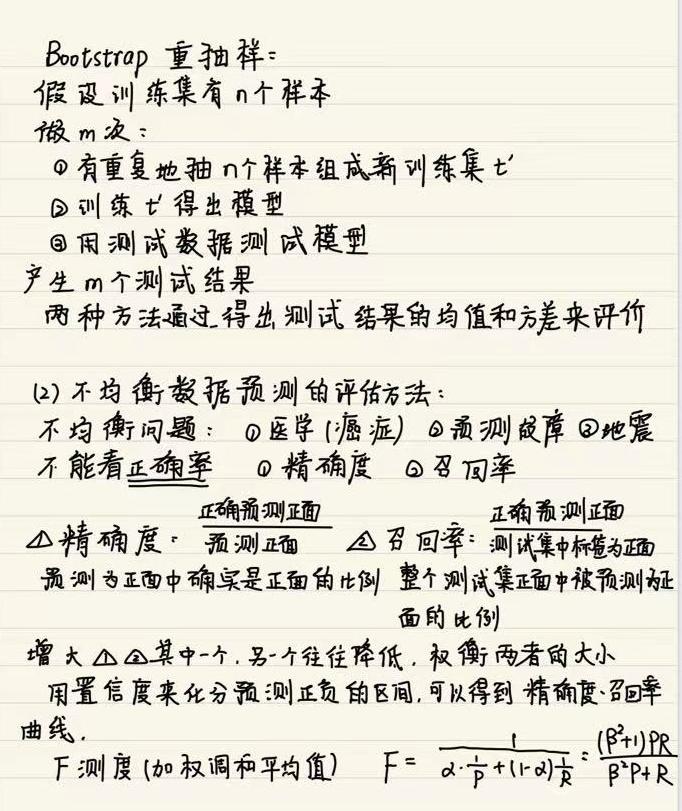 Bootstrap 重抽样:
假设训练集有n个样本
做m次:
① 有重复地抽n个样本组成新训练集 t'
② 训练 t' 得出模型
③ 用测试数据测试模型
产生m个测试结果
两种方法通过得出测试结果的均值和方差来评价
(2) 不均衡数据预测的评估方法:
不均衡问题: ①医学(癌症) ②预测故障 ③地震
不能看正确率 ① 精确度 ② 召回率
① 精确度: 正确预测正面 / 预测正面 ② 召回率: 正确预测正面 / 测试集中标签为正面
预测为正面中确实是正面的比例 整个测试集正面中被预测为正
面的比例
增大①②其中一个,另一个往往降低,权衡两者的大小
用置信度来化分预测正负的区间,可以得到精确度、召回率
曲线.
F测度(加权调和平均值) F = 1 / (α·1/P + (1-α)1/R) = (β²+1)PR / (β²P+R)